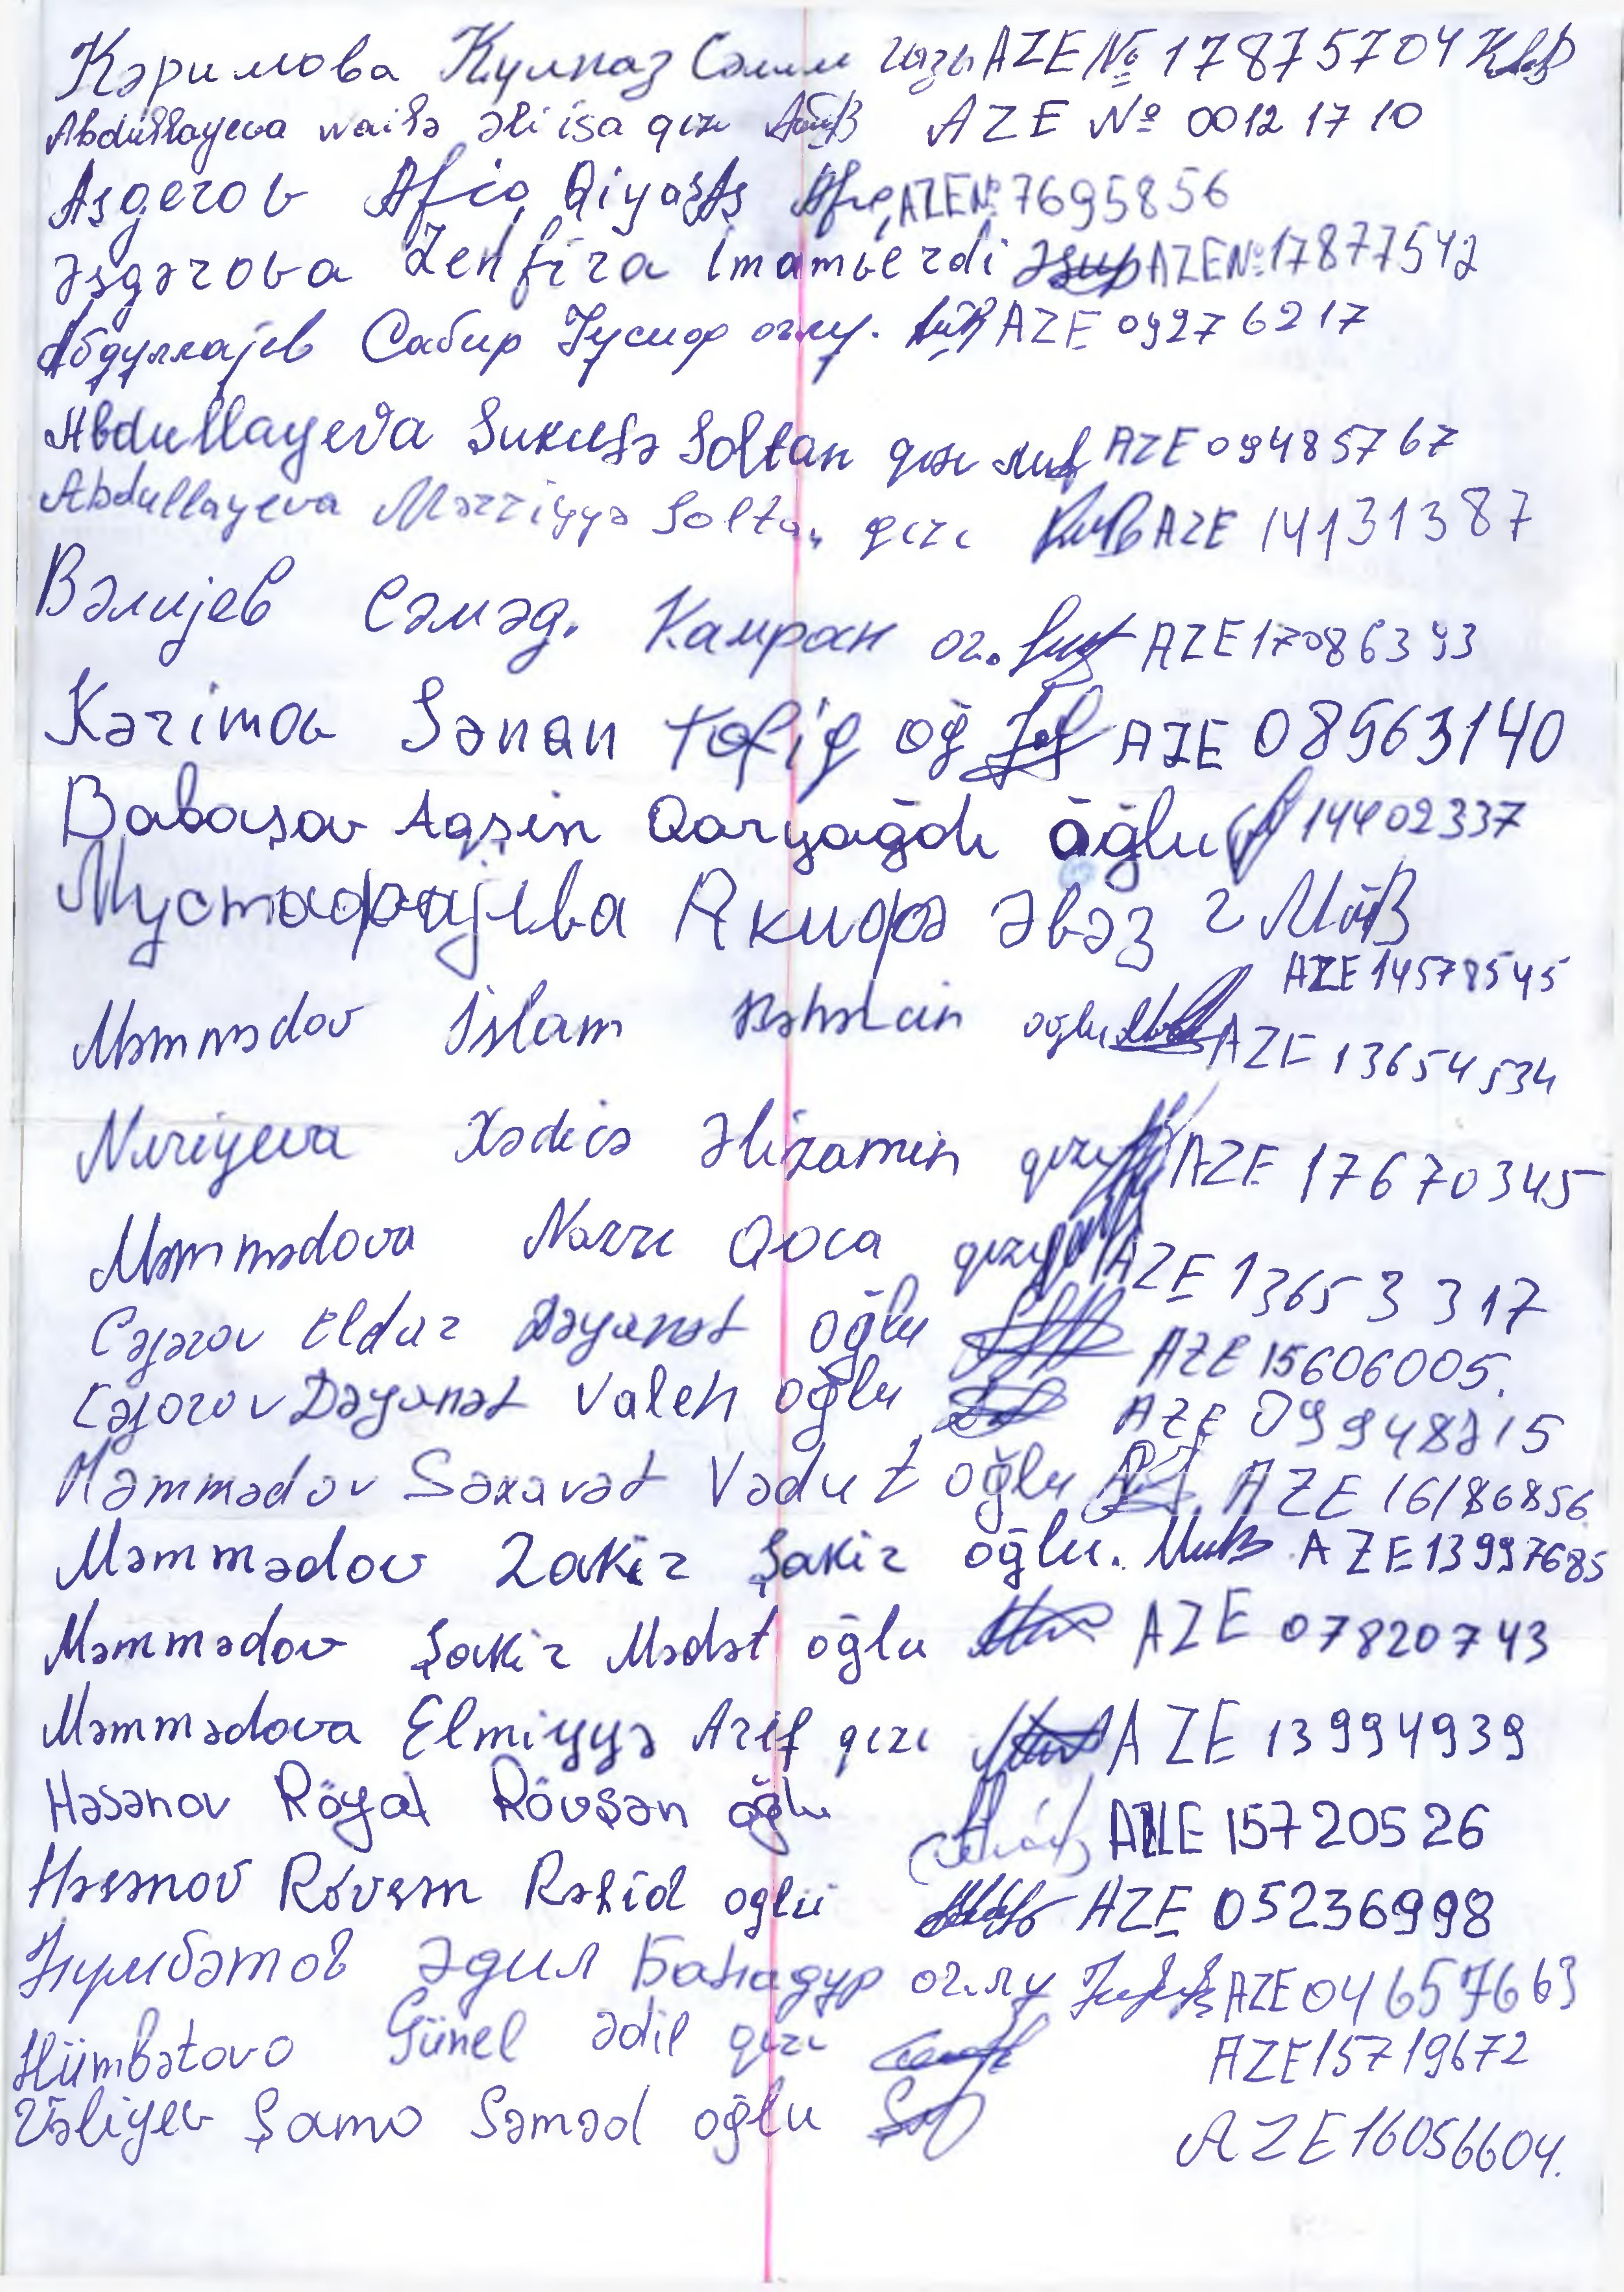 Кәримова Кулназ Сәлим гызы AZE № 17875704
Abdullayeva Nailə Əli isa qızı AZE № 00121710
Asgerov Afiq Qiyas AZE № 7695856
Əsgərova Zenfira Imamverdi AZE № 17877542
Абдуллајев Сабир Јусиф оғлу. AZE 09276217
Abdullayeva Sukufə Soltan qızı AZE 09485767
Abdullayeva Mərziyyə Soltan qızı AZE 14131387
Вәлијев Сәмәд. Камран ог. AZE 17086393
Kərimov Sənan Tofiq oğ AZE 08563140
Babaşov Aqşin Qaryağdı oğlu 14402337
Мустафајева Акифә Әвәз г
AZE 14578545
Məmmədov İslam Bəhəhcin oğlu AZE 13654534
Nuriyeva Xədicə Əlizamin qızı AZE 17670345
Məmmədova Nazrı Qoca qızı AZE 13653317
Cəfərov Eldar Dəyanət oğlu AZE 15606005.
Cəfərov Dəyanət Valeh oğlu AZE 09948815
Məmmədov Səxavət Vədut oğlu AZE 16186856
Məmmədov Zakir Şakir oğlu. AZE 13997685
Məmmədov Şakir Mədət oğlu AZE 07820743
Məmmədova Elmiyyə Arif qızı AZE 13994939
Həsənov Röyal Rövşən oğlu AZE 15720526
Həsənov Rövşən Rəşid oglu AZE 05236998
Һүмбәтов Әдил Баһадур оглу AZE 04657663
Hümbətova Günel Ədil qızı AZE 15719672
Vəliyev Şamo Səməd oğlu AZE 16056604.